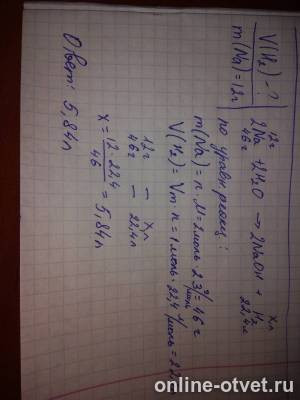 V(H₂) - ?
m(Na) = 12г
12г xл
2Na + 2H₂O → 2NaOH + H₂
46г 22,4л
по уравн. реакц:
m(Na) = n · M = 2моль · 23 г/моль = 46 г
V(H₂) = Vm · n = 1 моль · 22,4 л/моль = 22,
12г — xл
46г — 22,4л
x = 12 · 22,4 / 46 = 5,84л
Ответ: 5,84л
online-otvet.ru